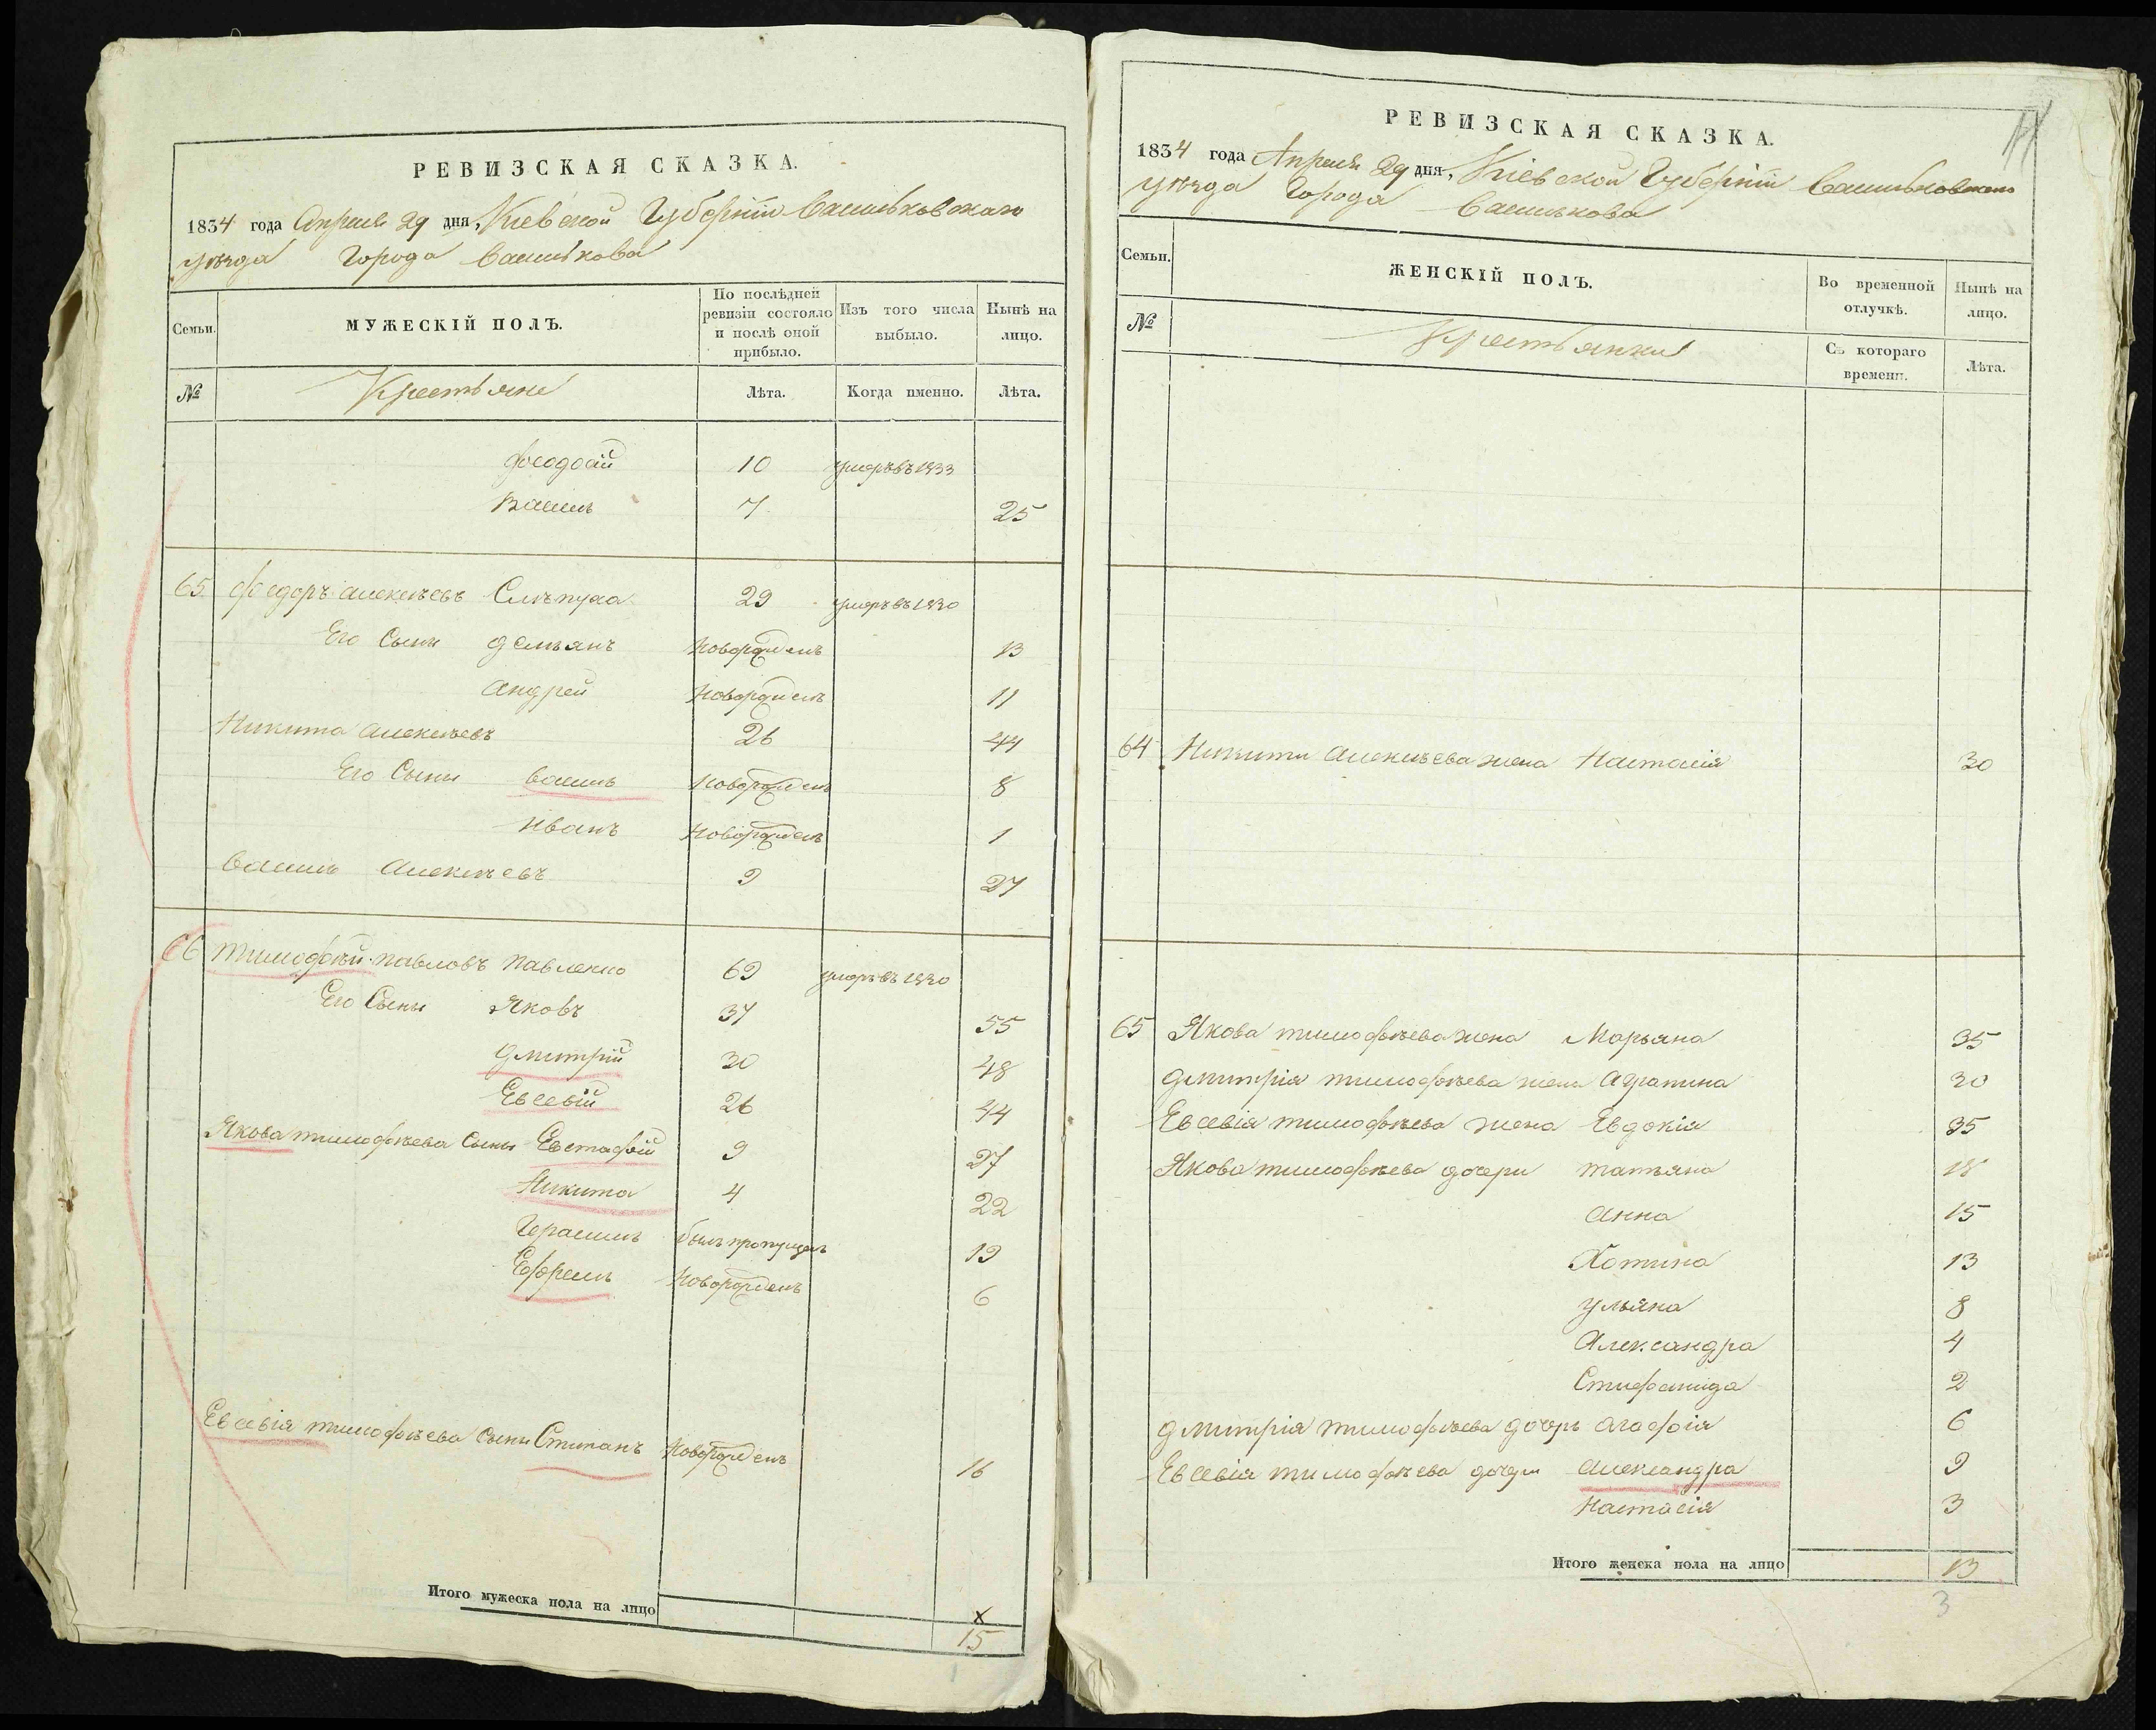 РЕВИЗСКАЯ СКАЗКА.
1834 года Апреля 29 дня, Кіевской Губерніи Васильковскаго
уѣзда Города Василькова
Семьи.
МУЖЕСКІЙ ПОЛЪ.
По послѣдней ревизіи состояло и послѣ оной прибыло.
Изъ того числа выбыло.
Нынѣ на лицо.
№
Крестьяне
Лѣта.
Когда именно.
Лѣта.
Феодосій 10 умеръ въ 1833
Василь 7 25
65 Федоръ Алексѣевъ Слѣпуха 29 умеръ въ 1830
Его Сыны Демьянъ Новорожденъ 13
Андрей Новорожденъ 11
Никита Алексѣевъ 26 44
Его Сыны Василь Новорожденъ 8
Иванъ Новорожденъ 1
Василь Алексѣевъ 9 27
66 Тимофѣй Павловъ Павленко 69 умеръ въ 1830
Его Сыны Яковъ 37 55
Дмитрій 30 48
Евсевій 26 44
Якова Тимофѣева Сыны Евстафій 9 27
Никита 4 22
Герасимъ былъ пропущенъ 19
Ефремъ Новорожденъ 6
Евсевія Тимофѣева Сынъ Стипанъ Новорожденъ 16
Итого мужеска пола на лицо
x
15
РЕВИЗСКАЯ СКАЗКА.
1834 года Апреля 29 дня, Кіевской Губерніи Васильковскаго
уѣзда Города Василькова
Семьи.
ЖЕНСКІЙ ПОЛЪ.
Во временной отлучкѣ.
Нынѣ на лицо.
№
Крестьянки
Съ котораго времени.
Лѣта.
64 Никиты Алексѣева жена Настасія 30
65 Якова Тимофѣева жена Марьяна 35
Дмитрія Тимофѣева жена Аграпина 30
Евсевія Тимофѣева жена Евдокія 35
Якова Тимофѣева дочери Татьяна 18
Анна 15
Хотина 13
Ульяна 8
Александра 4
Стифанида 2
Дмитрія Тимофѣева дочерь Агафія 6
Евсевія Тимофѣева дочери Александра 9
Настасія 3
Итого женска пола на лицо 13
3